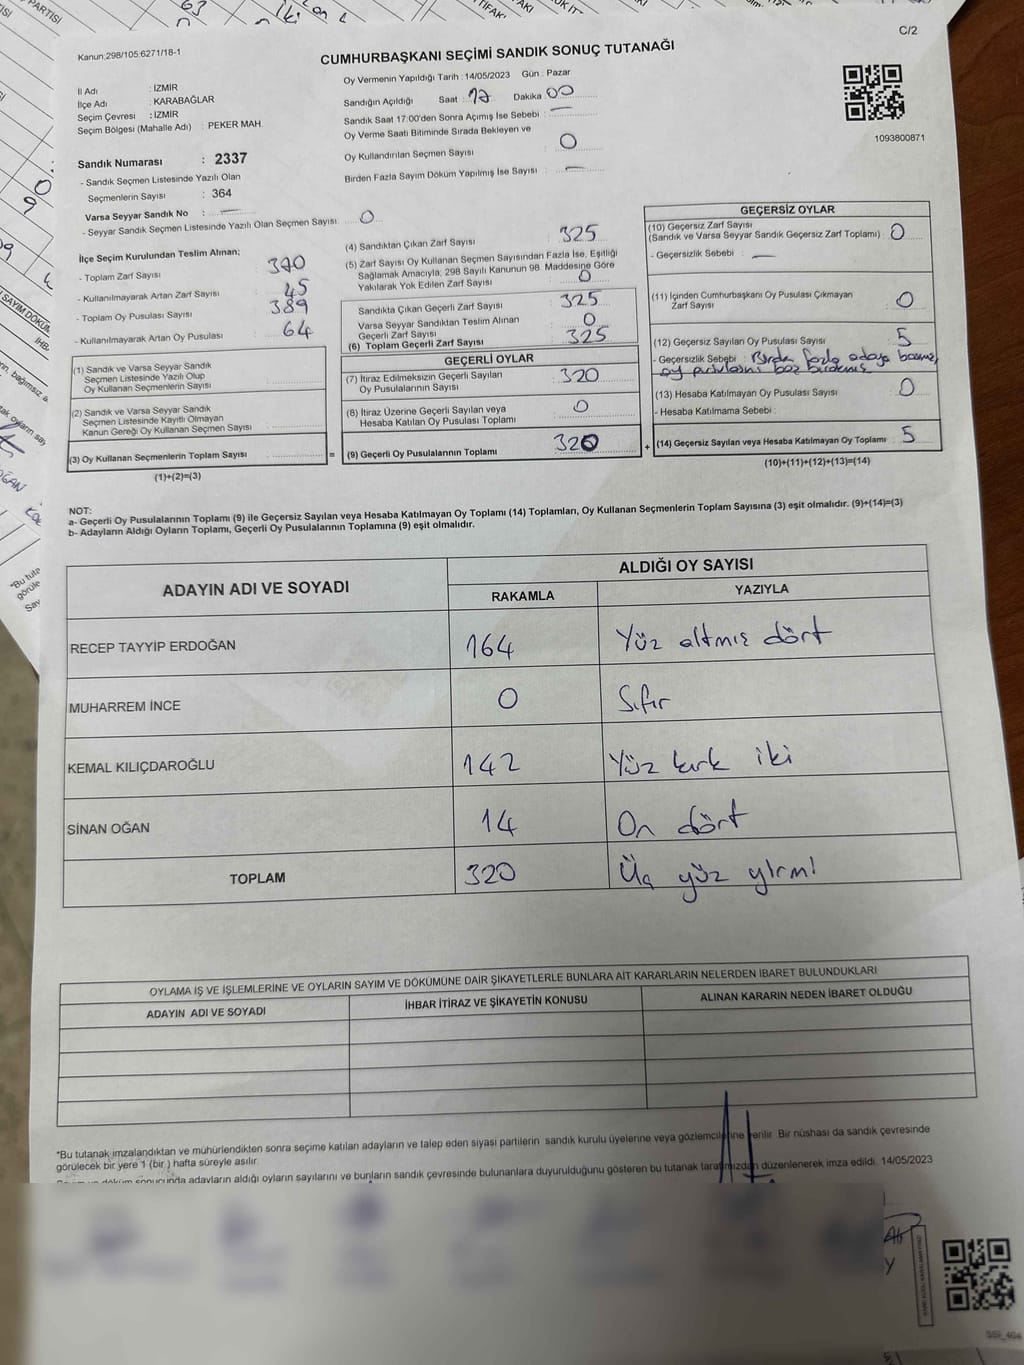 C/2
Kanun:298/105:6271/18-1
CUMHURBAŞKANI SEÇİMİ SANDIK SONUÇ TUTANAĞI
İl Adı : İZMİR
İlçe Adı : KARABAĞLAR
Seçim Çevresi : İZMİR
Seçim Bölgesi (Mahalle Adı) : PEKER MAH.
Oy Vermenin Yapıldığı Tarih :14/05/2023 Gün : Pazar
Sandığın Açıldığı Saat : 17 Dakika 00
Sandık Saat 17:00'den Sonra Açımış İse Sebebi : —
Oy Verme Saati Bitiminde Sırada Bekleyen ve
Oy Kullandırılan Seçmen Sayısı : 0
Birden Fazla Sayım Döküm Yapılmış İse Sayısı : —
1093800871
Sandık Numarası : 2337
- Sandık Seçmen Listesinde Yazılı Olan
Seçmenlerin Sayısı : 364
Varsa Seyyar Sandık No : —
- Seyyar Sandık Seçmen Listesinde Yazılı Olan Seçmen Sayısı : 0
İlçe Seçim Kurulundan Teslim Alınan;
- Toplam Zarf Sayısı 370
- Kullanılmayarak Artan Zarf Sayısı 45
- Toplam Oy Pusulası Sayısı 389
- Kullanılmayarak Artan Oy Pusulası 64
(1) Sandık ve Varsa Seyyar Sandık
Seçmen Listesinde Yazılı Olup
Oy Kullanan Seçmenlerin Sayısı :
(2) Sandık ve Varsa Seyyar Sandık
Seçmen Listesinde Kayıtlı Olmayan
Kanun Gereği Oy Kullanan Seçmen Sayısı :
(3) Oy Kullanan Seçmenlerin Toplam Sayısı :
(1)+(2)=(3)
=
(4) Sandıktan Çıkan Zarf Sayısı : 325
(5) Zarf Sayısı Oy Kullanan Seçmen Sayısından Fazla İse, Eşitliği
Sağlamak Amacıyla; 298 Sayılı Kanunun 98. Maddesine Göre
Yakılarak Yok Edilen Zarf Sayısı : 0
Sandıkta Çıkan Geçerli Zarf Sayısı : 325
Varsa Seyyar Sandıktan Teslim Alınan
Geçerli Zarf Sayısı : 0
(6) Toplam Geçerli Zarf Sayısı : 325
GEÇERLİ OYLAR
(7) İtiraz Edilmeksizin Geçerli Sayılan
Oy Pusulalarının Sayısı : 320
(8) İtiraz Üzerine Geçerli Sayılan veya
Hesaba Katılan Oy Pusulası Toplamı : 0
(9) Geçerli Oy Pusulalarının Toplamı : 320
+
GEÇERSİZ OYLAR
(10) Geçersiz Zarf Sayısı
(Sandık ve Varsa Seyyar Sandık Geçersiz Zarf Toplamı) : 0
- Geçersizlik Sebebi : —
(11) İçinden Cumhurbaşkanı Oy Pusulası Çıkmayan
Zarf Sayısı : 0
(12) Geçersiz Sayılan Oy Pusulası Sayısı : 5
- Geçersizlik Sebebi : Birden fazla adaya basmış,
oy pusulasını boş bırakmış
(13) Hesaba Katılmayan Oy Pusulası Sayısı : 0
- Hesaba Katılmama Sebebi :
(14) Geçersiz Sayılan veya Hesaba Katılmayan Oy Toplamı : 5
(10)+(11)+(12)+(13)=(14)
NOT:
a- Geçerli Oy Pusulalarının Toplamı (9) ile Geçersiz Sayılan veya Hesaba Katılmayan Oy Toplamı (14) Toplamları, Oy Kullanan Seçmenlerin Toplam Sayısına (3) eşit olmalıdır. (9)+(14)=(3)
b- Adayların Aldığı Oyların Toplamı, Geçerli Oy Pusulalarının Toplamına (9) eşit olmalıdır.
ADAYIN ADI VE SOYADI ALDIĞI OY SAYISI
RAKAMLA YAZIYLA
RECEP TAYYİP ERDOĞAN 164 Yüz altmış dört
MUHARREM İNCE 0 Sıfır
KEMAL KILIÇDAROĞLU 142 Yüz kırk iki
SİNAN OĞAN 14 On dört
TOPLAM 320 Üç yüz yirmi
OYLAMA İŞ VE İŞLEMLERİNE VE OYLARIN SAYIM VE DÖKÜMÜNE DAİR ŞİKAYETLERLE BUNLARA AİT KARARLARIN NELERDEN İBARET BULUNDUKLARI
ADAYIN ADI VE SOYADI İHBAR İTİRAZ VE ŞİKAYETİN KONUSU ALINAN KARARIN NEDEN İBARET OLDUĞU
*Bu tutanak imzalandıktan ve mühürlendikten sonra seçime katılan adayların ve talep eden siyasi partilerin sandık kurulu üyelerine veya gözlemcilerine verilir. Bir nüshası da sandık çevresinde
görülecek bir yere 1 (bir ) hafta süreyle asılır.
döküm sonucunda adayların aldığı oyların sayılarını ve bunların sandık çevresinde bulunanlara duyurulduğunu gösteren bu tutanak tarafımızdan düzenlenerek imza edildi. 14/05/2023